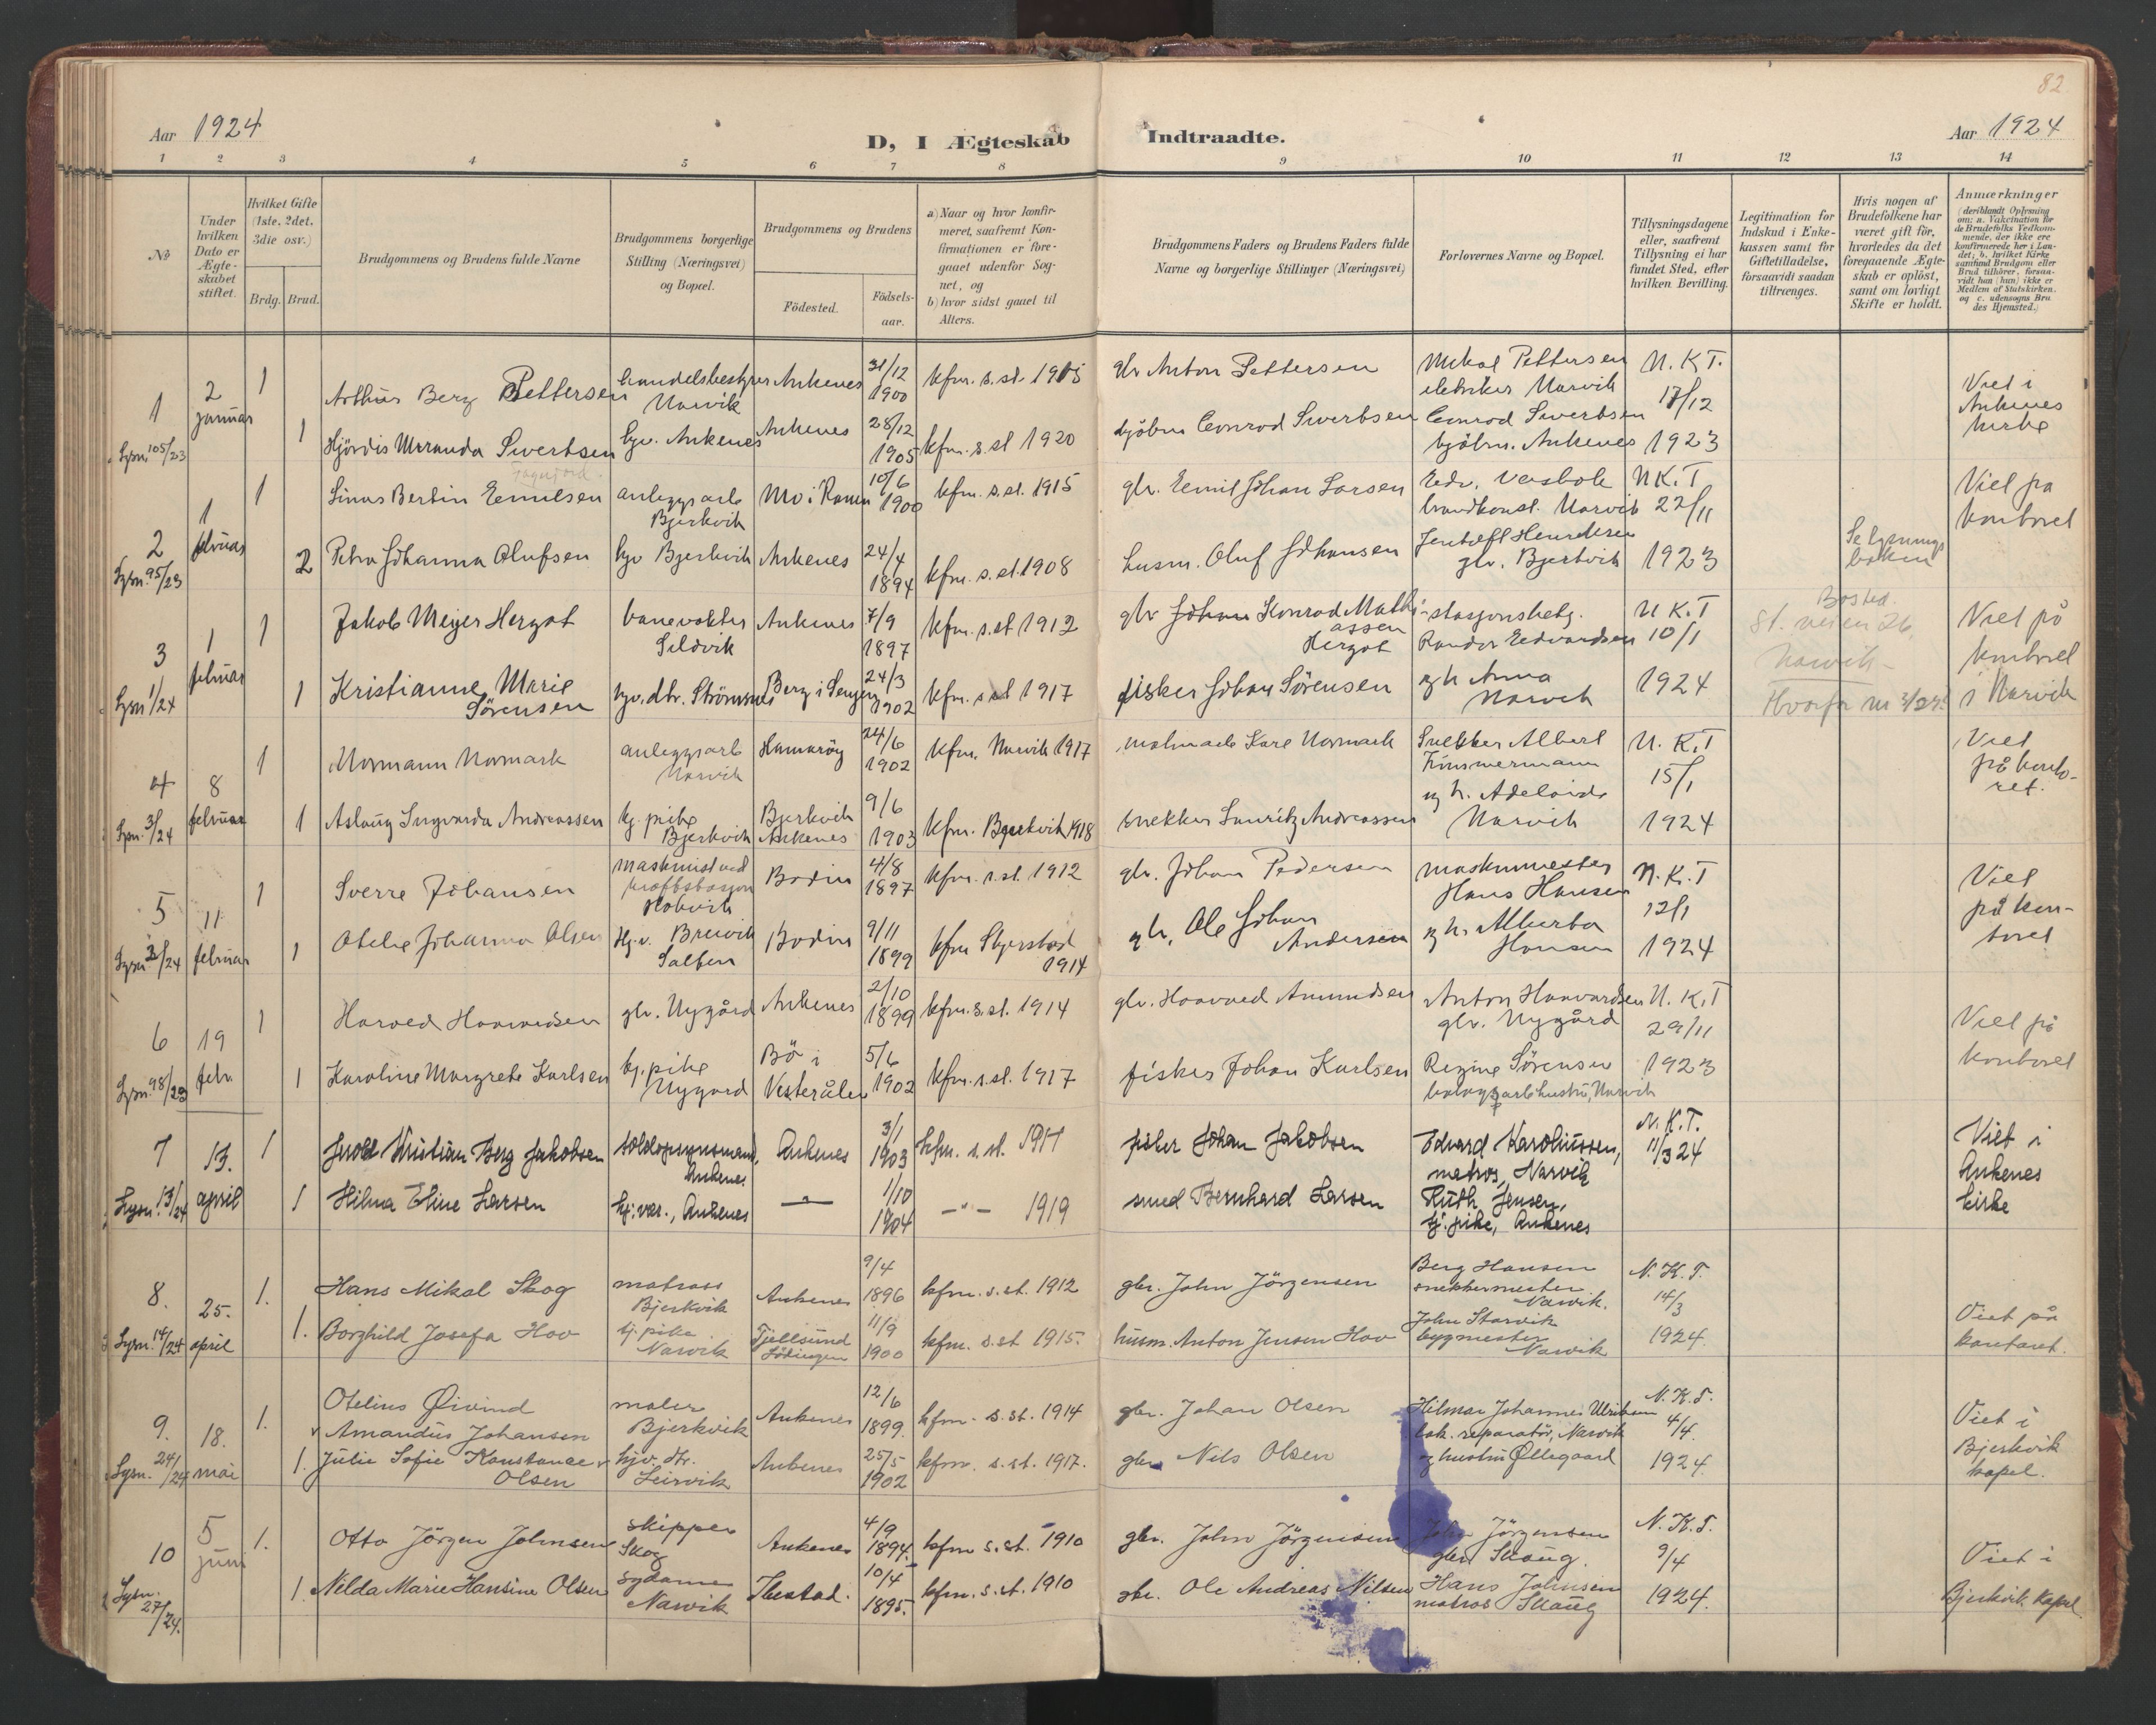 82
Aar 1924
D, I Ægteskab Indtraadte.
Aar 1924
1 2 3 4 5 6 7 8 9 10 11 12 13 14
No
Under hvilken Dato er Ægteskabet stiftet.
Hvilket Gifte (1ste, 2det, 3die osv.)
Brdg. Brud.
Brudgommens og Brudens fulde Navne
Brudgommens borgerlige Stilling (Næringsvei) og Bopæl.
Brudgommens og Brudens
Födested.
Födsels-aar.
a) Naar og hvor konfirmeret, saafremt Konfirmationen er foregaaet udenfor Sognet, og
b) hvor sidst gaaet til Alters.
Brudgommens Faders og Brudens Faders fulde Navne og borgerlige Stillinger (Næringsvei)
Forlovernes Navne og Bopæl.
Tillysningsdagene eller, saafremt Tillysning ei har fundet Sted, efter hvilken Bevilling.
Legitimation for Indskud i Enkekassen samt for Giftetilladelse, forsaavidt saadan tiltrænges.
Hvis nogen af Brudefolkene har været gift för, hvorledes da det foregaaende Ægteskab er oplöst, samt om lovligt Skifte er holdt.
Anmærkninger
(deriblandt Oplysning om: a. Vakcination for de Brudefolks Vedkommende, der ikke ere konfirmerede her i Landet; b. hvilket Kirkesamfund Brudgom eller Brud tilhörer, forsaavidt han (hun) ikke er Medlem af Statskirken. og c. udensogns Brudes Hjemsted.)
1 2 januar 1 Arthur Berg Pettersen handelsbestyrer Narvik Ankenes 31/12 1900 kfm. s. st. 1915 gbr Anton Pettersen Mikal Pettersen elektriker Narvik N. K. T. 17/12 1923 Viet i Ankenes kirke
Lysn. 105/23 1 Hjördis Miranda Sivertsen hjv. Ankenes Ankenes 28/12 1905 kfm. s. st 1920 Conrad Sivertsen Conrad Sivertsen Ankenes
2 1 februar 1 Linus Bertin Emilsen anleggsarb Bjerkvik Mo i Ranen 10/6 1900 kfm. s. st. 1915 gbr. Emil Johan Larsen Edv. Narvik N K. T 22/11 1923 Viet på kontoret
Lysn. 95/23 2 Petra Johanna Olufsen hjv Bjerkvik Ankenes 24/4 1894 kfm. s. st. 1908 husm. Oluf Johansen Jentoft Henriksen gbr. Bjerkvik Se lysningsboken
3 1 februar 1 Jakob Meyer Hergot banevokter Sildvik Ankenes 7/9 1897 kfm. s. st 1912 gbr Johan Konrad Mathiassen Hergot stasjonsbetj. Randor Edvardsen og h. Anna Narvik N K. T 10/1 1924 Bosted. Narvik Viet på kontoret i Narvik
Lysn 1/24 1 Kristianne Marie Sörensen hjv. dtr. Strömsnes Berg i Senjen 24/3 1902 kfm. s. st 1917 fisker Johan Sörensen
4 8 februar 1 Normann Normark anleggsarb Narvik Hamaröy 24/6 1902 kfm. Narvik 1917 malmarb Kare Normark Snekker Albert Timmermann og h. Adelaide Narvik N. K. T 15/1 1924 Viet på kontoret.
Lysn. 3/24 1 Aslaug Ingvarda Andreassen tj. pike Bjerkvik Bjerkvik Ankenes 9/6 1903 kfm. Bjerkvik 1918 snekker Lauritz Andreassen
5 11 februar 1 Sverre Johansen maskinist ved kraftstasjon Bodin 4/8 1897 kfm. s. st. 1912 gbr. Johan Pedersen maskinmester Hans Hansen og h. Alberta Hansen N. K. T 12/1 1924 Viet på kontoret
Lysn 2/24 1 Otelie Johanna Olsen Hj.v. Breivik Salten Bodin 9/11 1899 kfm Skjerstad 1914 gbr. Ole Johan Andersen
6 19 febr. 1 Harved Haavardsen gbr. Nygård Ankenes 2/10 1899 kfm. s. st. 1914 gbr. Haavard Amundsen Anton Haavardsen gbr. Nygård N. K. T 29/11 1923 Viet på kontoret
Lysn. 98/23 1 Karoline Margrete Karlsen tj. pike Nygård Bö i Vesterålen 5/6 1902 kfm. s. st. 1917 fisker Johan Karlsen Regine Sörensen hustru, Narvik
7 13. april 1 Kristian Berg Jakobsen toldopsynsmand, Ankenes Ankenes 3/1 1903 kfm. s. st. 1917 fisker Johan Jakobsen Edvard Karoliussen, matros, Narvik N. K. T. 11/3 24 Viet i Ankenes kirke
Lysn. 13/24 1 Hilma Eline Larsen hj: vær., Ankenes — 1/10 1904 — " — 1919 smed Bernhard Larsen Ruth Jensen, tj. pike, Ankenes
8. 25. april 1. Hans Mikal Skog matros Bjerkvik Ankenes 9/4 1896 kfm. s. st. 1912 gbr. John Jörgensen Berg Hansen snekkermester Narvik. N. K. T. 14/3 1924. Viet på kontoret.
Lysn. 14/24 1. Borghild Josefa Hov tj. pike Narvik Tjellsund Lödingen 11/9 1900 kfm. s. st 1915. husm. Anton Jensen Hov John Storvik bygmester Narvik
9. 18. mai 1. Otelius Øivind Amandus Johansen maler Bjerkvik Ankenes 12/6 1899. kfm. s. st. 1914 gbr. Johan Olsen Hilmar Johannes Ulriksen lok. reparatör, Narvik og hustru Øllegaard N. K. T. 4/4. 1924. Viet i Bjerkvik kapel.
Lysn. 24/24 1. Julie Sofie Konstanse Olsen hjv. dtr. Leirvik Ankenes 25/5 1902 kfm. s. st. 1917. gbr Nils Olsen
10 5 juni 1. Otto Jörgen Johnsen skipper Skog Ankenes 4/9 1894. kfm s. st. 1910 gbr. John Jörgensen John Jörgensen gbr Skaug. N. K. T. 9/4 1924. Viet i Bjerkvik Kapel
Lysn. 27/24. 1. Nilda Marie Hansine Olsen sydame Narvik Ibestad. 10/4 1895. kfm. s. st. 1910 gbr. Ole Andreas Nilsen Hans Johnsen matros Skaug